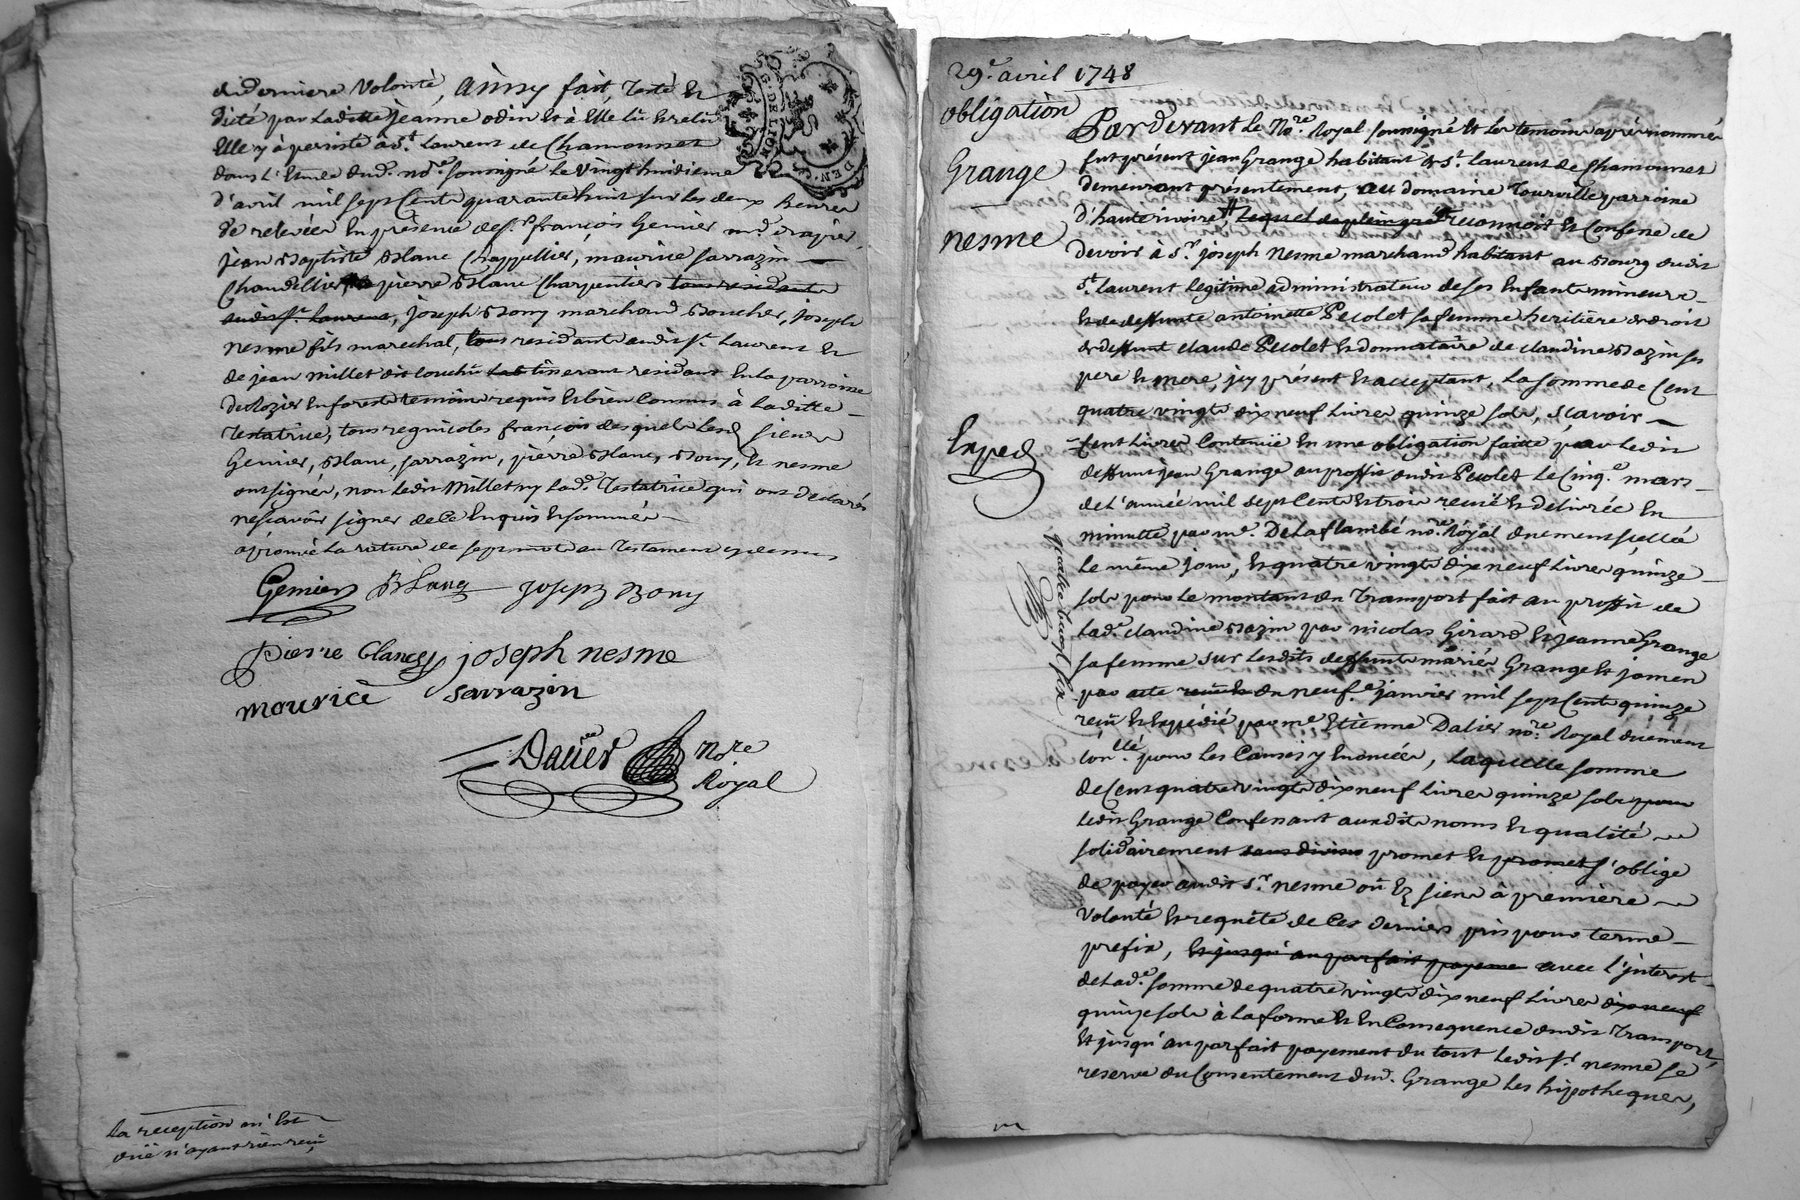 de derniere volonté, ainsy fait, testé et
dicté par laditte jeanne odin et à Elle lû et relû
Elle y à persisté à St. Laurent de Chamousset
dans l'Etude dud. nre. soussigné le vingt huitieme
d'avril mil sept Cents quarante huit sur les deux heures
de relevée En présence de Sr. françois Genier md. drapier,
jean Baptiste Blanc Chappellier, maurice sarrazin
Chandellier, pierre Blanc Charpentier tous residants
audit St. Laurent, joseph Bony marchand Boucher, joseph
nesme fils marechal, tous residants audit St. Laurent et
de jean millet dit couchû tisserant residant En la parroisse
de Rozier En forest temoins requis et bien Connus à laditte
testatrice, tous regnicoles françois desquels lesd. sieurs
Genier, Blanc, sarrazin, pierre Blanc, Bony, et nesme
ont signés, non ledit millet ny lad. testatrice qui ont declarés
ne sçavoir signer de ce Enquis et sommés
aprouvé la rature de sept mots au testament cy dessus
Genier Blanc joseph Bony
pierre blanc joseph nesme
mourice sarrazin
Dalier Nore
Royal
la reception en Est
düe n'ayant rien reçu
G. DE LION
29e. avril 1748
obligation
Grange
nesme
Exped
Pardevant le Nore. Royal soussigné et les temoins après nommés
fut présent jean Grange habitant à St. Laurent de Chamousset
demeurant présentement, au domaine Tourville parroisse
d'hauterivoire, Lequel de plein gré reconnoit et Confesse de
devoir à Sr. joseph Nesme marchand habitant au Bourg dudit
St. Laurent legitime administrateur de ses Enfants mineurs
et de deffunte antoinette Pecolet sa femme heritiere de droit
de deffunt claude Pecolet et donnataire de claudine Bazin ses
pere et mere, icy présent et acceptant, la somme de Cent
quatre vingts dix neuf Livres quinze sols, sçavoir
Cent Livres Contenüe En une obligation faitte par ledit
deffunt jean Grange au proffit dudit Pecolet le Cinqe. mars
de l'année mil sept Cents et trois reçuë et delivrée En
minutte par me. Delaflambé nore. Royal duement scellé
le même jour, et quatre vingts dix neuf Livres quinze
sols pour le montant du transport fait au proffit de
lade. claudine Bazin par nicolas Girard et jeanne Grange
sa femme sur lesdits deffunts mariés Grange et jomen
par acte reçu et du neufe. janvier mil sept Cents quinze
reçu et Expédié par me Etienne Dalier nore. Royal duement
Conllé. pour les Causes y Enoncées, Laquelle somme
de Cent quatre vingts dix neuf Livres quinze sols pour
ledit Grange Confessant auxdits noms et qualité
solidairement sans division promet et promet s'oblige
de payer audit Sr. nesme où Ez siens à première
volonté et requête de Ces derniers pris pour terme
prefix, et jusqu'au parfait payeme avec l'interest
de lade. somme de quatre vingts dix neuf Livres dix neuf
quinze sols à la forme et En Consequence dudit transport
et jusqu'au parfait payement du tout ledit Sr. nesme se
reserve du Consentement dud. Grange les hipotheques,